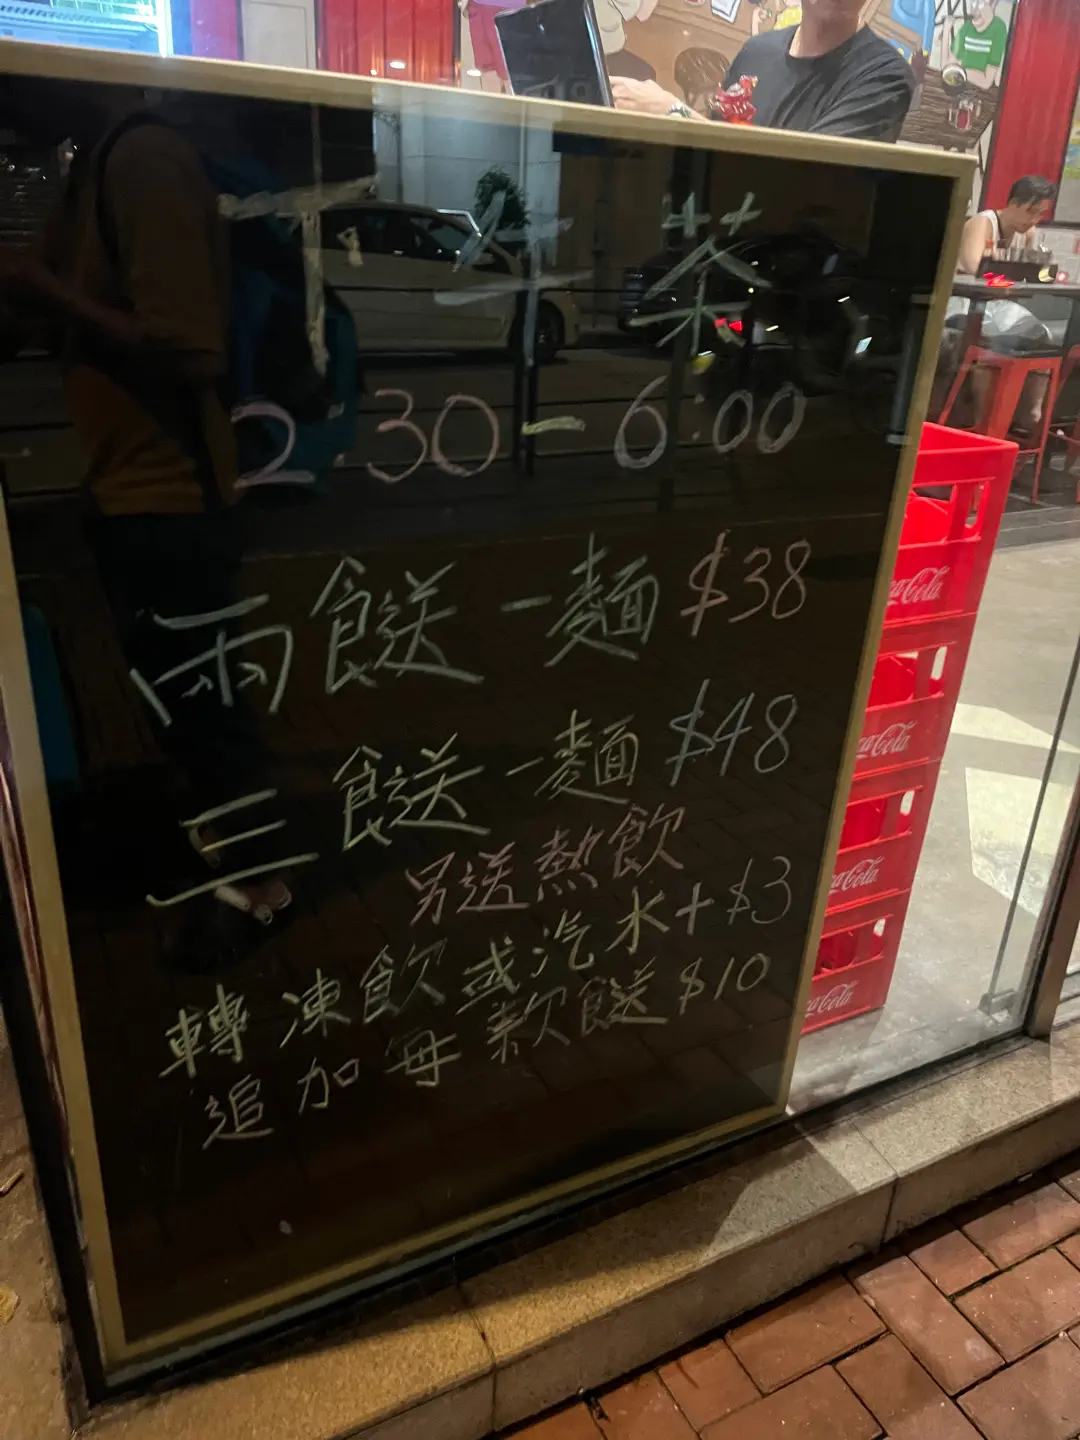 下午茶
2:30-6:00
兩餸一麵 $38
三餸一麵 $48
另送熱飲
轉凍飲或汽水+$3
追加每款餸 $10
Coca-Cola
Coca-Cola
Coca-Cola
Coca-Cola